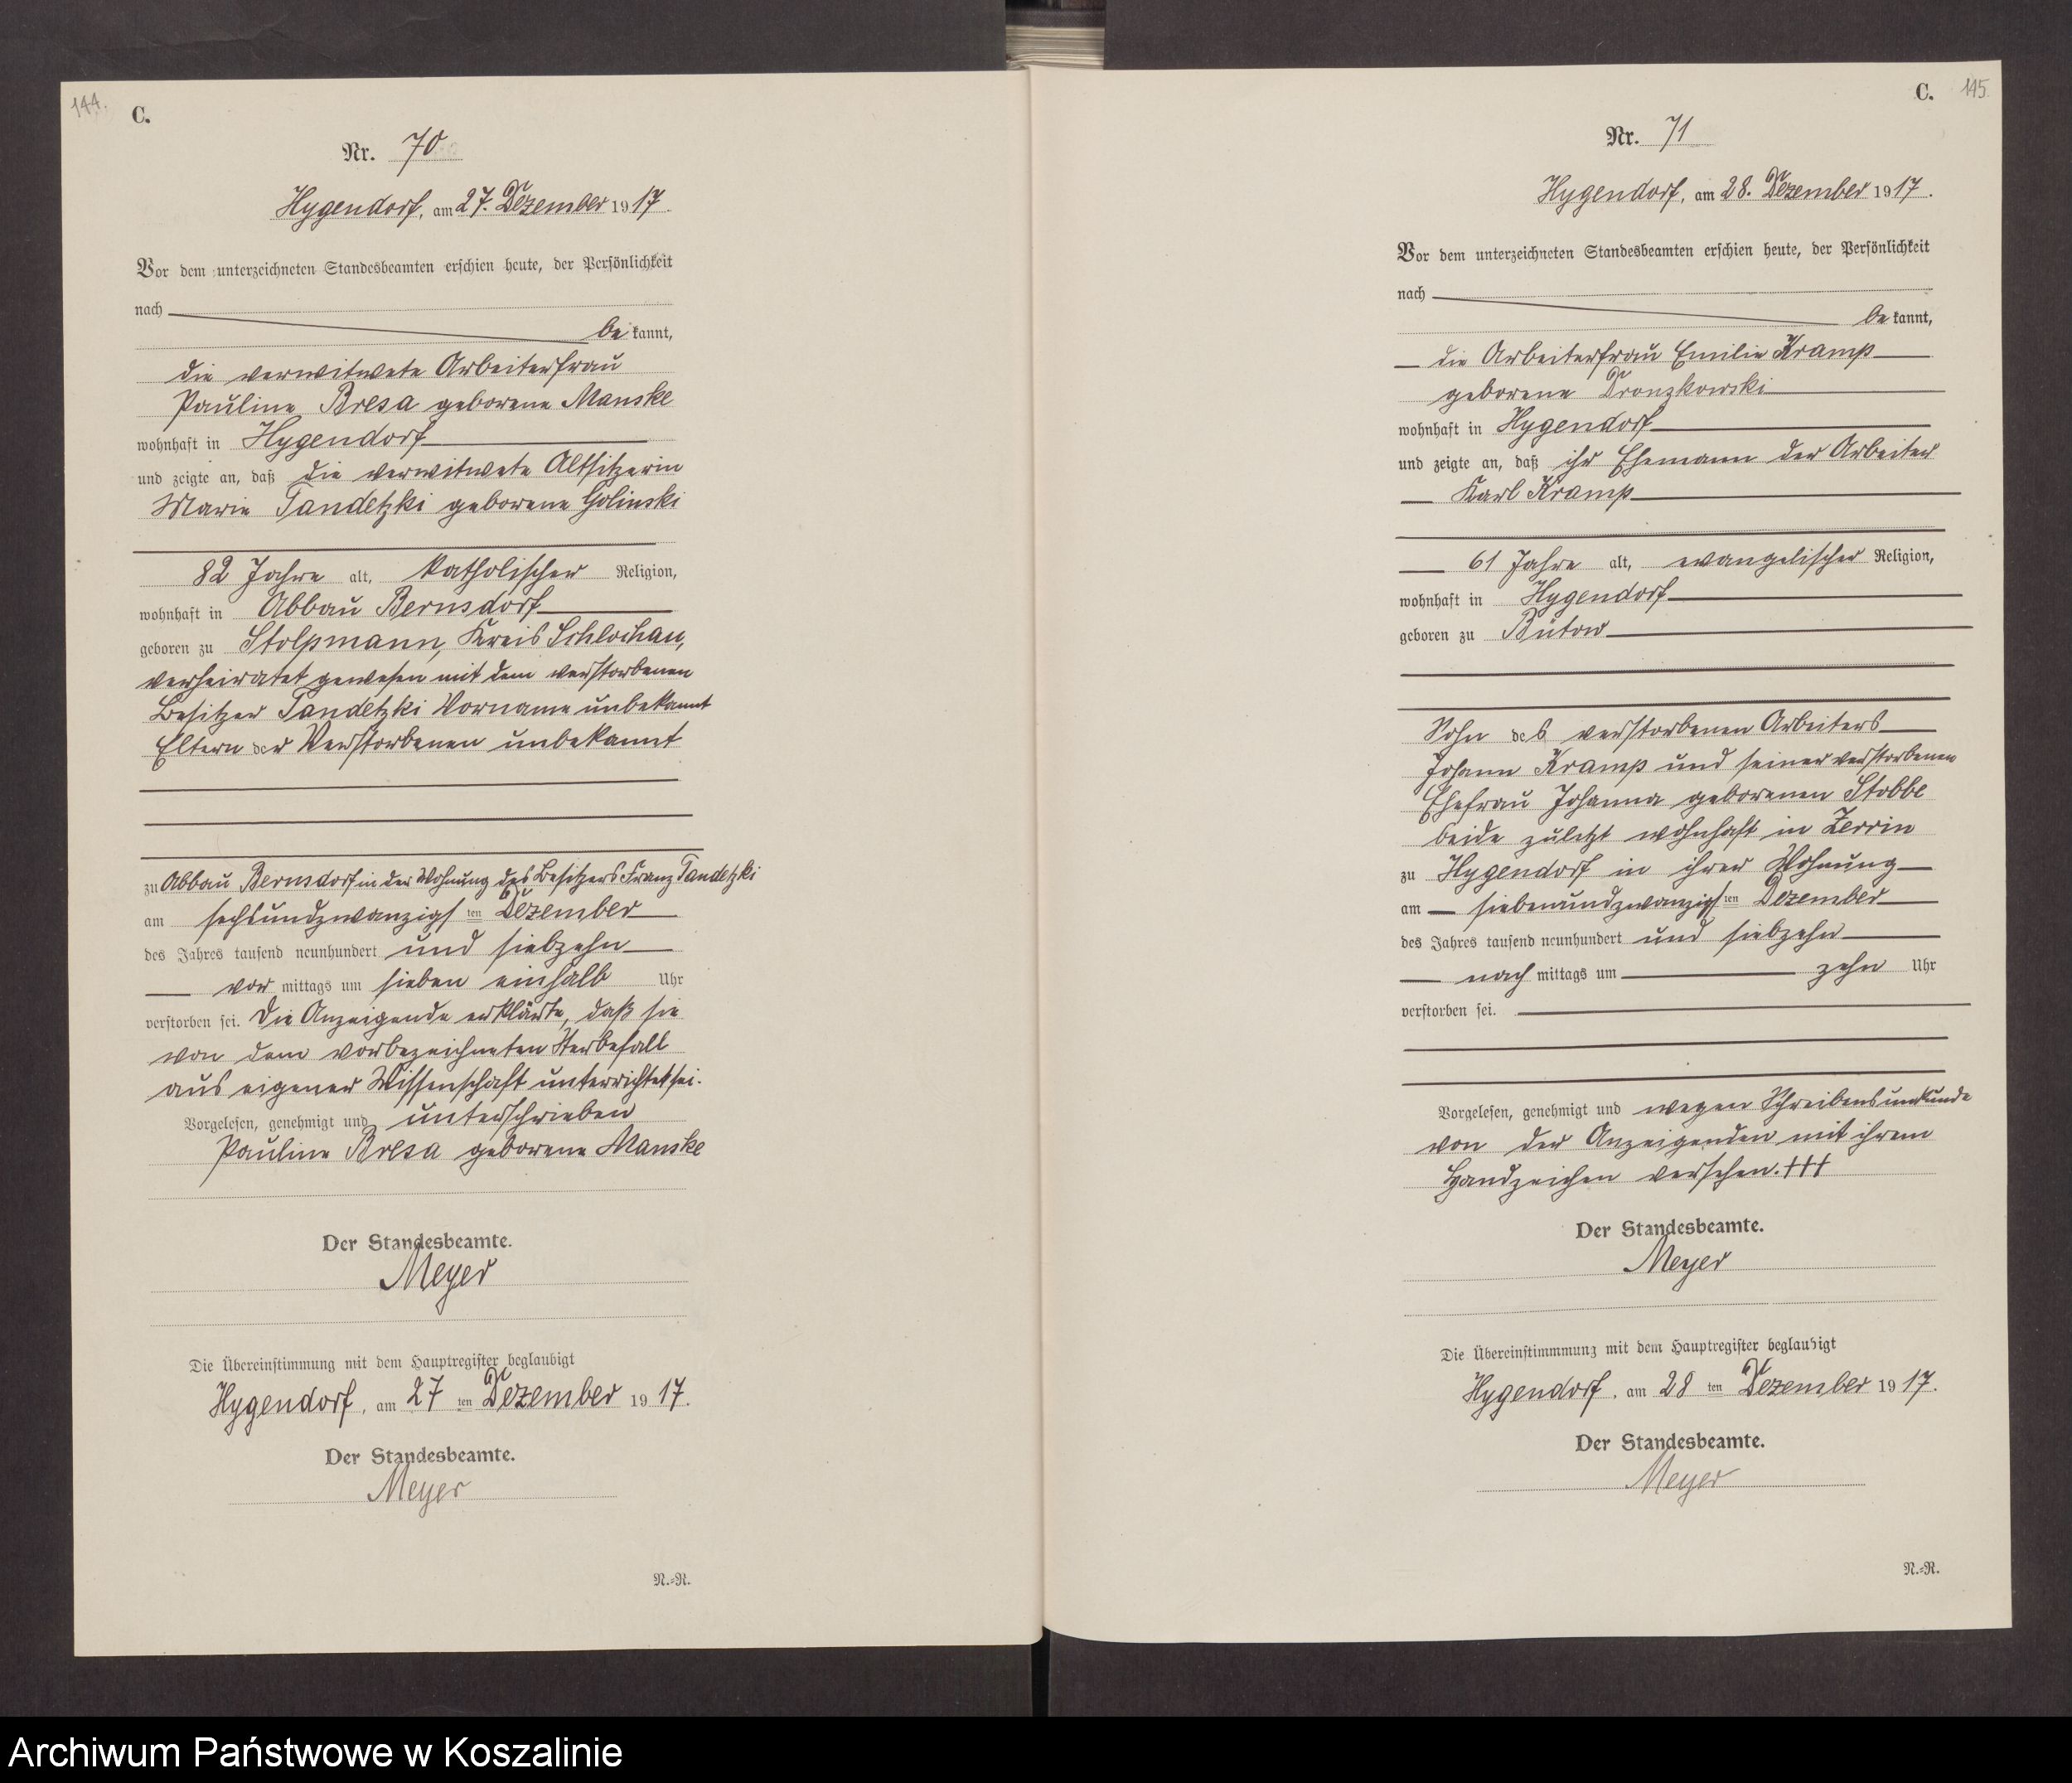 144.
C.
Nr. 70
Hygendorf, am 27. Dezember 1917.
Vor dem unterzeichneten Standesbeamten erschien heute, der Persönlichkeit
nach
be kannt,
die verwitwete Arbeiterfrau
Pauline Bresa geborene Manske
wohnhaft in Hygendorf
und zeigte an, daß die verwitwete Altsitzerin
Marie Tandetzki geborene Golinski
82 Jahre alt, katholischer Religion,
wohnhaft in Abbau Bernsdorf
geboren zu Stolpmann, Kreis Schlochau,
verheiratet gewesen mit dem verstorbenen
Besitzer Tandetzki Vorname unbekannt
Eltern der Verstorbenen unbekannt
zu Abbau Bernsdorf in der Wohnung des Besitzers Franz Tandetzki
am sechsundzwanzigsten Dezember
des Jahres tausend neunhundert und siebzehn
vor mittags um sieben einhalb Uhr
verstorben sei. Die Anzeigende erklärte, daß sie
von dem vorbezeichneten Sterbefall
aus eigener Wissenschaft unterrichtet sei.
Vorgelesen, genehmigt und unterschrieben
Pauline Bresa geborene Manske
Der Standesbeamte.
Meyer
Die Übereinstimmung mit dem Hauptregister beglaubigt
Hygendorf, am 27 ten Dezember 1917.
Der Standesbeamte.
Meyer
N.=R.
C. 145.
Nr. 71
Hygendorf, am 28. Dezember 1917.
Vor dem unterzeichneten Standesbeamten erschien heute, der Persönlichkeit
nach
be kannt,
die Arbeiterfrau Emilie Kramp
geborene Dronzkowski
wohnhaft in Hygendorf
und zeigte an, daß ihr Ehemann der Arbeiter
Karl Kramp
61 Jahre alt, evangelischer Religion,
wohnhaft in Hygendorf
geboren zu Bütow
Sohn des verstorbenen Arbeiters
Johann Kramp und seiner verstorbenen
Ehefrau Johanna geborenen Stobbe
beide zuletzt wohnhaft in Zerrin
zu Hygendorf in ihrer Wohnung
am siebenundzwanzigsten Dezember
des Jahres tausend neunhundert und siebzehn
nach mittags um zehn Uhr
verstorben sei.
Vorgelesen, genehmigt und wegen Schreibensunkunde
von der Anzeigenden mit ihrem
Handzeichen versehen. +++
Der Standesbeamte.
Meyer
Die Übereinstimmung mit dem Hauptregister beglaubigt
Hygendorf, am 28 ten Dezember 1917.
Der Standesbeamte.
Meyer
N.=R.
Archiwum Państwowe w Koszalinie